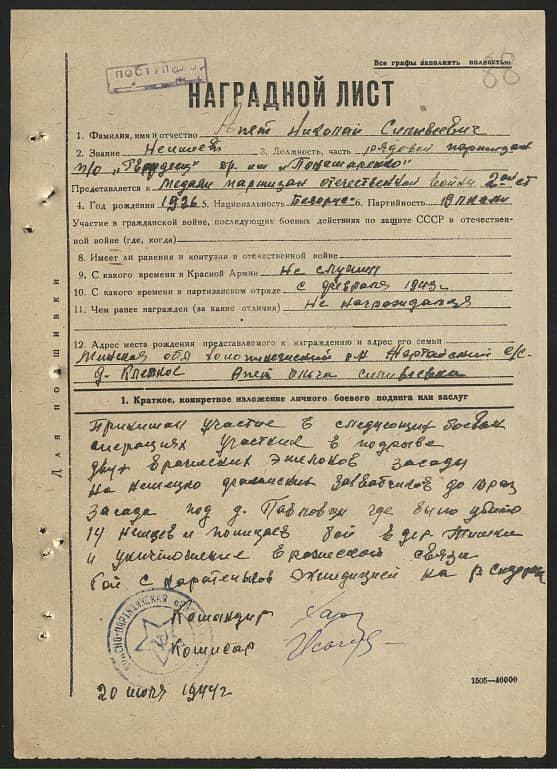 Все графы заполнить полностью
88
ПОСТУПИЛО
НАГРАДНОЙ ЛИСТ
1. Фамилия, имя и отчество Апет Николай
2. Звание 3. Должность, часть рядовой партизан
п/о „Гвардеец" бр. им „Пономаренко"
Представляется к медали партизан отечественной войны 2ой ст
4. Год рождения 1926 5. Национальность Белорус 6. Партийность
Участие в гражданской войне, последующих боевых действиях по защите СССР и отечествен-
ной войне (где, когда)
8. Имеет ли ранения и контузии в отечественной войне
9. С какого времени в Красной Армии Не служил
10. С какого времени в партизанском отряде с февраля 1943 г
11. Чем ранее награжден (за какие отличия) Не награждался
12. Адрес места рождения представляемого к награждению и адрес его семьи
Минская обл р-н с/с.
д. Апет Ольга
Для подшивки
1. Краткое, конкретное изложение личного боевого подвига или заслуг
Принимал участие в следующих боевых
операциях участник в подрыве
двух вражеских эшелонов засады
на немецко фашистских захватчиков до 10 раз
Засада под д. где было убито
14 немцев и полицаев бой в дер
и уничтожение вражеской связи
бой с экспедицией на р
Командир
Комиссар
20 июля 1944 г
1505—40000